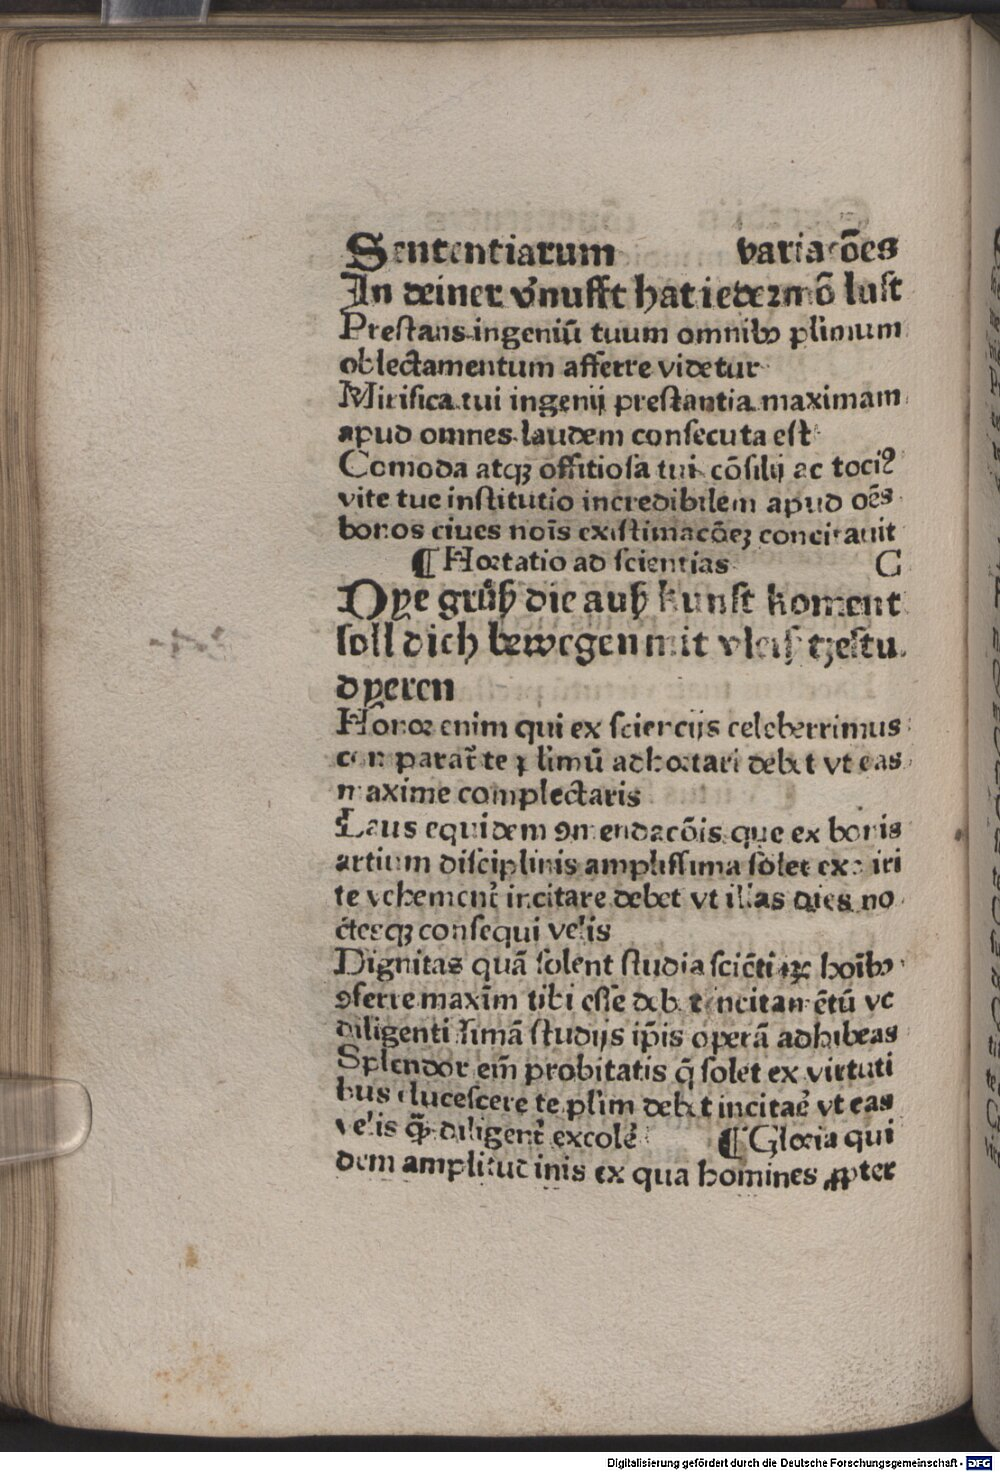 Sententiarum variacōes
In deiner v̓nufft hat iedermō lust
Prestans ingeniū tuum omnibꝰ plimum
oblectamentum afferre videtur
Mirifica tui ingenij prestantia maximam
apud omnes laudem consecuta est
Comoda atqꝫ offitiosa tui cōsilij ac toci9
vite tue institutio incredibilem apud oēs
bonos ciues nois̄ existimacōeꝫ concitauit
¶ Hortatio ad scientias C
Dye grůß die auß kunst koment
soll dich bewegen mit vleis tzestu
dyeren
Honor enim qui ex sciencijs celeberrimus
comparat̄ te plimū adhortari debet vt eas
maxime complectaris
Laus equidem ꝯmendacōis que ex bonis
artium disciplinis amplissima solet exoriri
te vehement̄ incitare debet vt illas dies no
ctesqꝫ consequi velis
Dignitas quā solent studia sciētiaꝝ hoibꝰ
ꝯferre maxim̄ tibi esse debet incitamētū vt
diligentissimā studijs ip̄is operā adhibeas
Splendor em̄ probitatis q̄ solet ex virtuti
bus elucescere te plim debet incitae᷑ vt eas
velis qᷓꝫ diligent̄ excole᷑ ¶ Gloria qui
dem amplitudinis ex qua homines ꝓpter
Digitalisierung gefördert durch die Deutsche Forschungsgemeinschaft - DFG